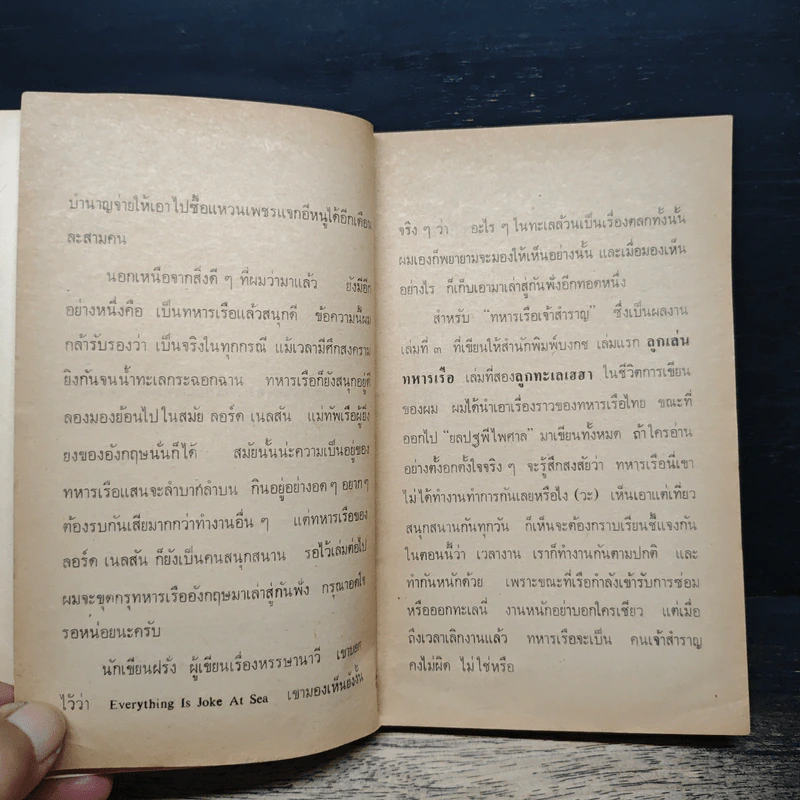 บำนาญจ่ายให้เอาไปซื้อแหวนเพชรแจกอีหนูได้อีกเดือน
ละสามคน
นอกเหนือจากสิ่งดี ๆ ที่ผมว่ามาแล้ว ยังมีอีก
อย่างหนึ่งคือ เป็นทหารเรือแล้วสนุกดี ข้อความนี้ผม
กล้ารับรองว่า เป็นจริงในทุกกรณี แม้เวลามีศึกสงคราม
ยิงกันจนน้ำทะเลกระฉอกฉาน ทหารเรือก็ยังสนุกอยู่ดี
ลองมองย้อนไปในสมัย ลอร์ด เนลสัน แม่ทัพเรือผู้ยิ่ง
ยงของอังกฤษนั่นก็ได้ สมัยนั้นน่ะความเป็นอยู่ของ
ทหารเรือแสนจะลำบากลำบน กินอยู่อย่างอด ๆ อยาก ๆ
ต้องรบกันเสียมากกว่าทำงานอื่น ๆ แต่ทหารเรือของ
ลอร์ด เนลสัน ก็ยังเป็นคนสนุกสนาน รอไว้เล่มต่อไป
ผมจะขุดกรุทหารเรืออังกฤษมาเล่าสู่กันฟัง กรุณาอดใจ
รอหน่อยนะครับ
นักเขียนฝรั่ง ผู้เขียนเรื่องหรรษานาวี เขาบอก
ไว้ว่า Everything Is Joke At Sea เขามองเห็นยังงั้น
จริง ๆ ว่า อะไร ๆ ในทะเลล้วนเป็นเรื่องตลกทั้งนั้น
ผมเองก็พยายามจะมองให้เห็นอย่างนั้น และเมื่อมองเห็น
อย่างไร ก็เก็บเอามาเล่าสู่กันฟังอีกทอดหนึ่ง
สำหรับ "ทหารเรือเจ้าสำราญ" ซึ่งเป็นผลงาน
เล่มที่ ๓ ที่เขียนให้สำนักพิมพ์บงกช เล่มแรก ลูกเล่น
ทหารเรือ เล่มที่สองลูกทะเลเฮฮา ในชีวิตการเขียน
ของผม ผมได้นำเอาเรื่องราวของทหารเรือไทย ขณะที่
ออกไป "ยลปฐพีไพศาล" มาเขียนทั้งหมด ถ้าใครอ่าน
อย่างตั้งอกตั้งใจจริง ๆ จะรู้สึกสงสัยว่า ทหารเรือนี่เขา
ไม่ได้ทำงานทำการกันเลยหรือไง (วะ) เห็นเอาแต่เที่ยว
สนุกสนานกันทุกวัน ก็เห็นจะต้องกราบเรียนชี้แจงกัน
ในตอนนี้ว่า เวลางาน เราก็ทำงานกันตามปกติ และ
ทำกันหนักด้วย เพราะขณะที่เรือกำลังเข้ารับการซ่อม
หรือออกทะเลนี่ งานหนักอย่าบอกใครเชียว แต่เมื่อ
ถึงเวลาเลิกงานแล้ว ทหารเรือจะเป็น คนเจ้าสำราญ
คงไม่ผิด ไม่ใช่หรือ